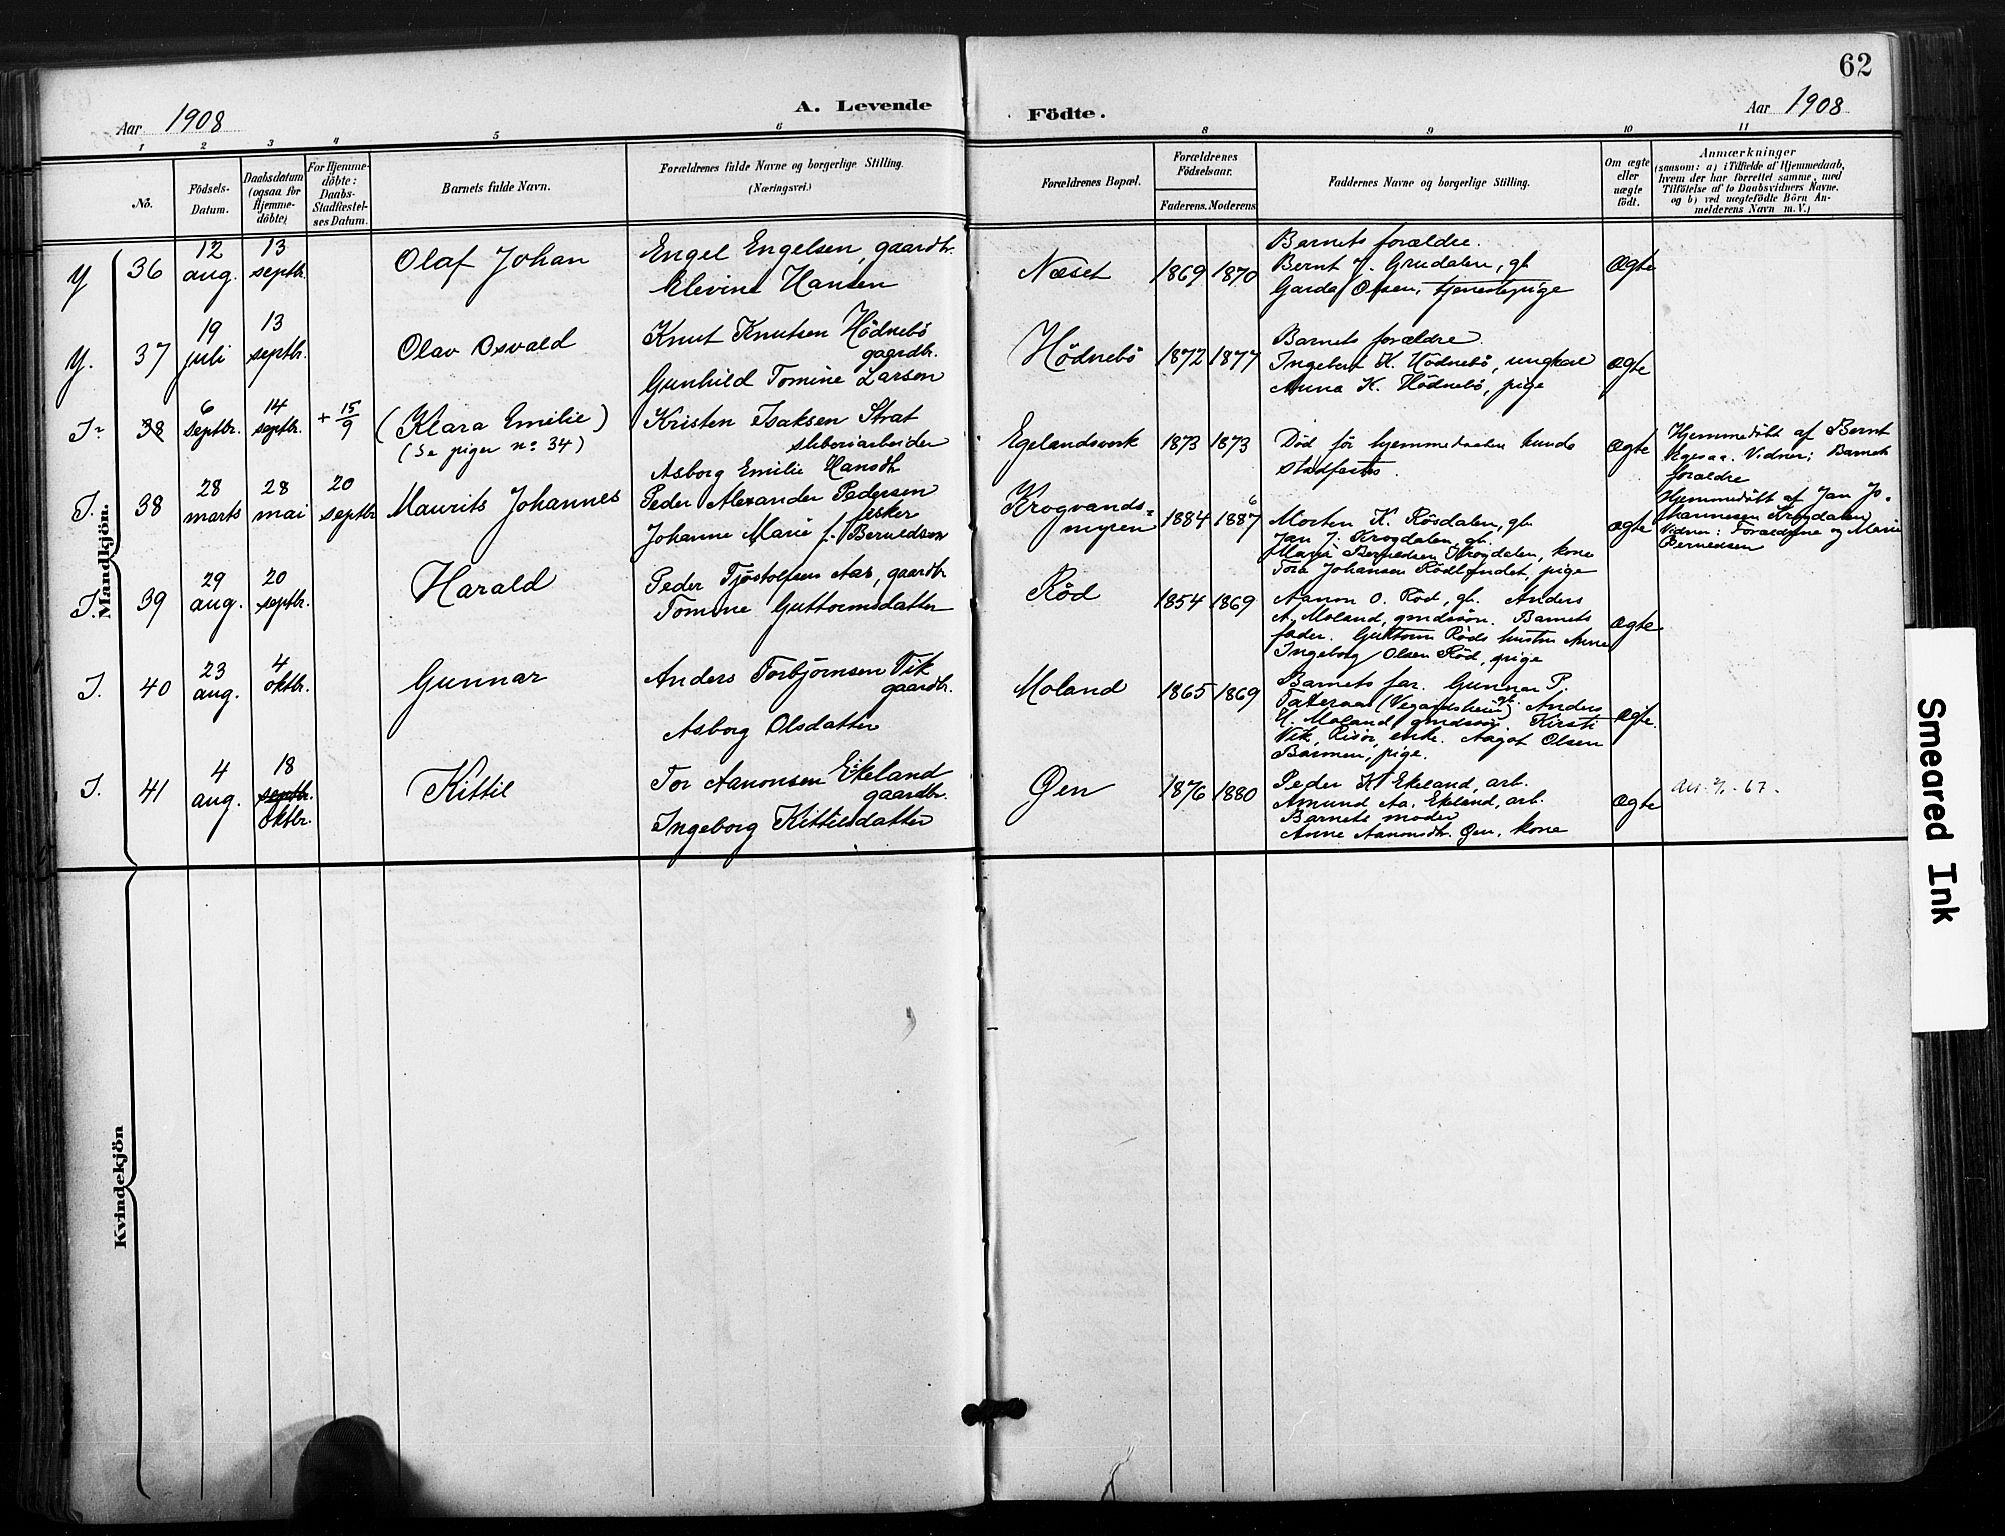 62
Aar 1908
A. Levende
Födte.
Aar 1908
1 2 3 4 5 6 8 9 10 11
No.
Födsels-
Datum.
Daabsdatum
(ogsaa for
Hjemme-
döbte)
For Hjemme-
döbte:
Daabs-
Stadfæstel-
ses Datum.
Barnets fulde Navn.
Forældrenes fulde Navne og borgerlige Stilling.
(Næringsvei.)
Forældrenes Bopæl.
Forældrenes
Födselsaar.
Faderens. Moderens.
Faddernes Navne og borgerlige Stilling.
Om ægte
eller
uægte
født.
Anmærkninger
(saasom: a) i Tilfælde af Hjemmedaab,
hvem der har forrettet samme, med
Tilföielse af to Daabsvidners Navne.
og b) ved uægtefödte Börn An-
melderens Navn m. V.)
Mandkjön.
Y 36
12
aug.
13
septbr.
Olaf Johan
Engel Engelsen, gaardbr.
Elevine Hansen
Næset
1869 1870
Barnets forældre.
Bernt J. Grudalen, gb.
Garda Olsen, tjenestepige
Ægte
Y. 37
19
juli
13
septbr.
Olav Osvald
Knut Knutsen Hödnebö
gaardbr.
Gunhild Tomine Larsen
Hödnebö
1872 1877
Barnets forældre.
Ingebert K. Hödnebö, ungkar
Anna K. Hödnebö, pige
Ægte
I. 38
6
septbr.
14
septbr.
+ 15/9
(Klara Emilie)
(se piger no 34)
Kristen Isaksen Strat
sliberiarbeider
Asborg Emilie Hansdtr
Egelandsverk
1873 1873
Död för hjemmedaaben kunde
stadfæstes.
Ægte
Hjemmedöbt af Bernt
Vidner: Barnets
forældre
I. 38
28
marts
28
mai
20
septbr
Maurits Johannes
Peder Alexander Pedersen
fisker
Johanne Marie f. Berntdsen
Krogvands-
myren
1884 1887
6
Morten K. Rösdalen, gb.
Jan J. Krogdalen, gb.
Marie Berntdsen Krogdalen, kone
Tora Johansen Rödlandet, pige
Ægte
Hjemmedöbt af Jan Jo-
hannesen Krogdalen
Vidner: Forældrene og Marie
Berntdsen
I. 39
29
aug.
20
septbr.
Harald
Peder Tjöstolfsen Aas, gaardbr
Tomine Guttormsdatter
Röd
1854 1869
Aanon O. Röd, gb. Anders
A. Moland, gmdssön. Barnets
fader. Guttorm Röds hustru Anne
Ingeborg Olsen Röd, pige
Ægte
I. 40
23
aug.
4
oktbr.
Gunnar
Anders Torbjörnsen Vik
gaardbr.
Asborg Olsdatter
Moland
1865 1869
Barnets far. Gunnar P.
(Vegardsheien) gb. Anders
Moland, gmdssön. Kirsti
Vik, Risör, enke. Aagot Olsen
Bosmen, pige.
Ægte.
I. 41
4
aug.
18
septbr.
oktbr.
Kittil
Tor Aanonsen Ekeland
gaardbr.
Ingeborg Kittilsdatter
Øen
1876 1880
Peder K. Ekeland, arb.
Amund Aa. Ekeland, arb.
Barnets moder
Anne Aanonsdtr. Øen, kone
Ægte
Kvindekjön
Smeared Ink